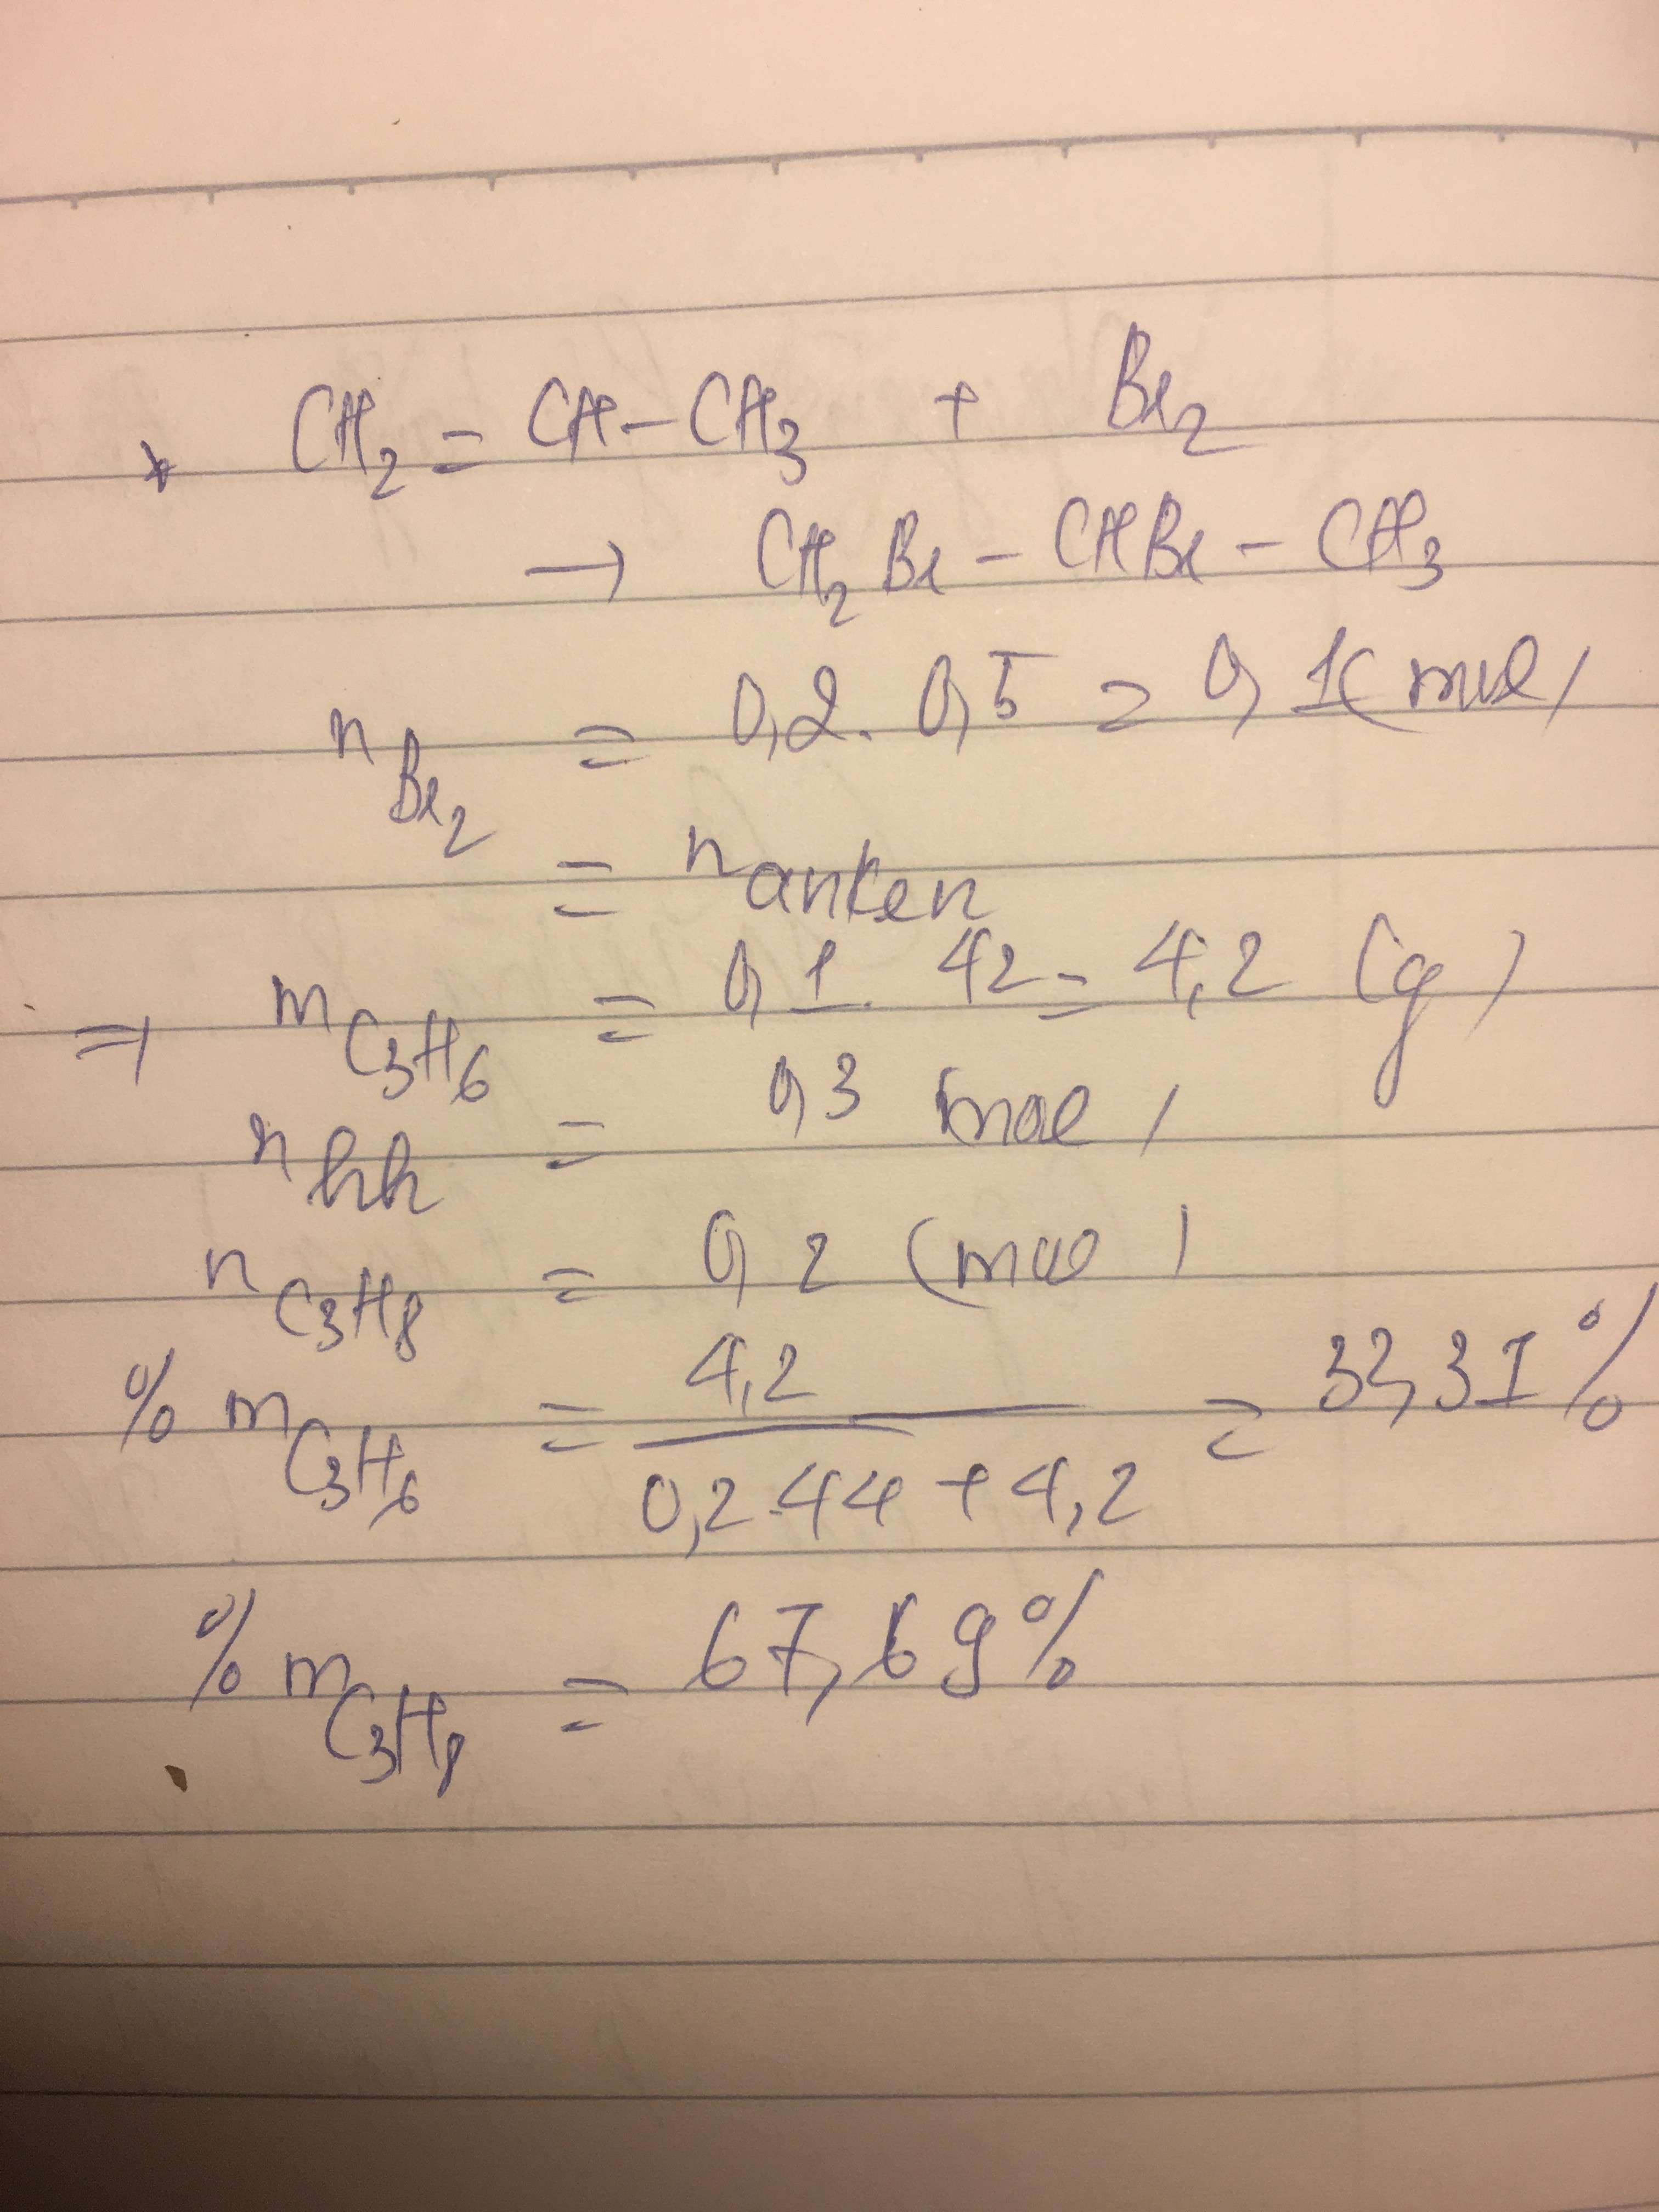 * CH2 = CH - CH3 + Br2
→ CH2Br - CHBr - CH3
nBr2 = 0,2. 0,5 = 0,1 (mol)
= nanken
=> mC3H6 = 0,1. 42 = 4,2 (g)
nhh = 0,3 (mol)
nC3H8 = 0,2 (mol)
% mC3H6 = 4,2 / 0,2.44 + 4,2 = 32,31%
% mC3H8 = 67,69%